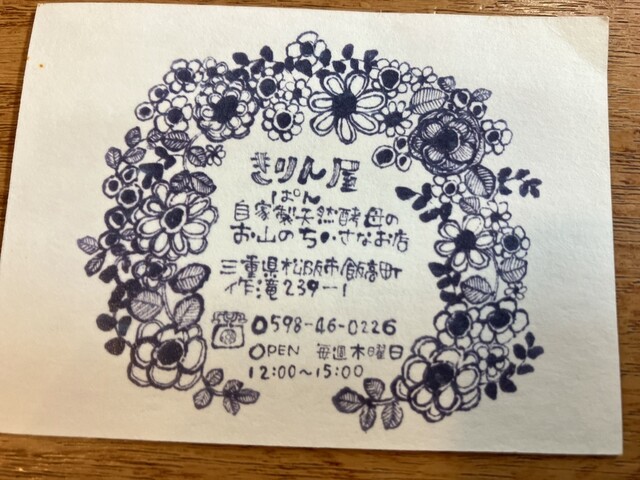 きりん屋
ぱん
自家製天然酵母の
お山のちいさなお店
三重県松阪市飯高町
作滝239-1
0598-46-0226
OPEN 毎週木曜日
12:00~15:00